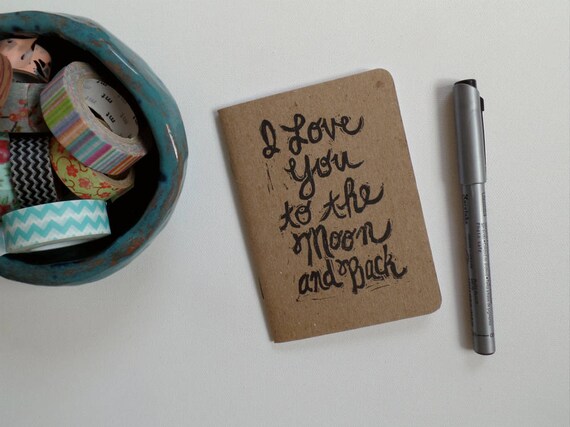 I Love
You
to the
Moon
and Back
mt